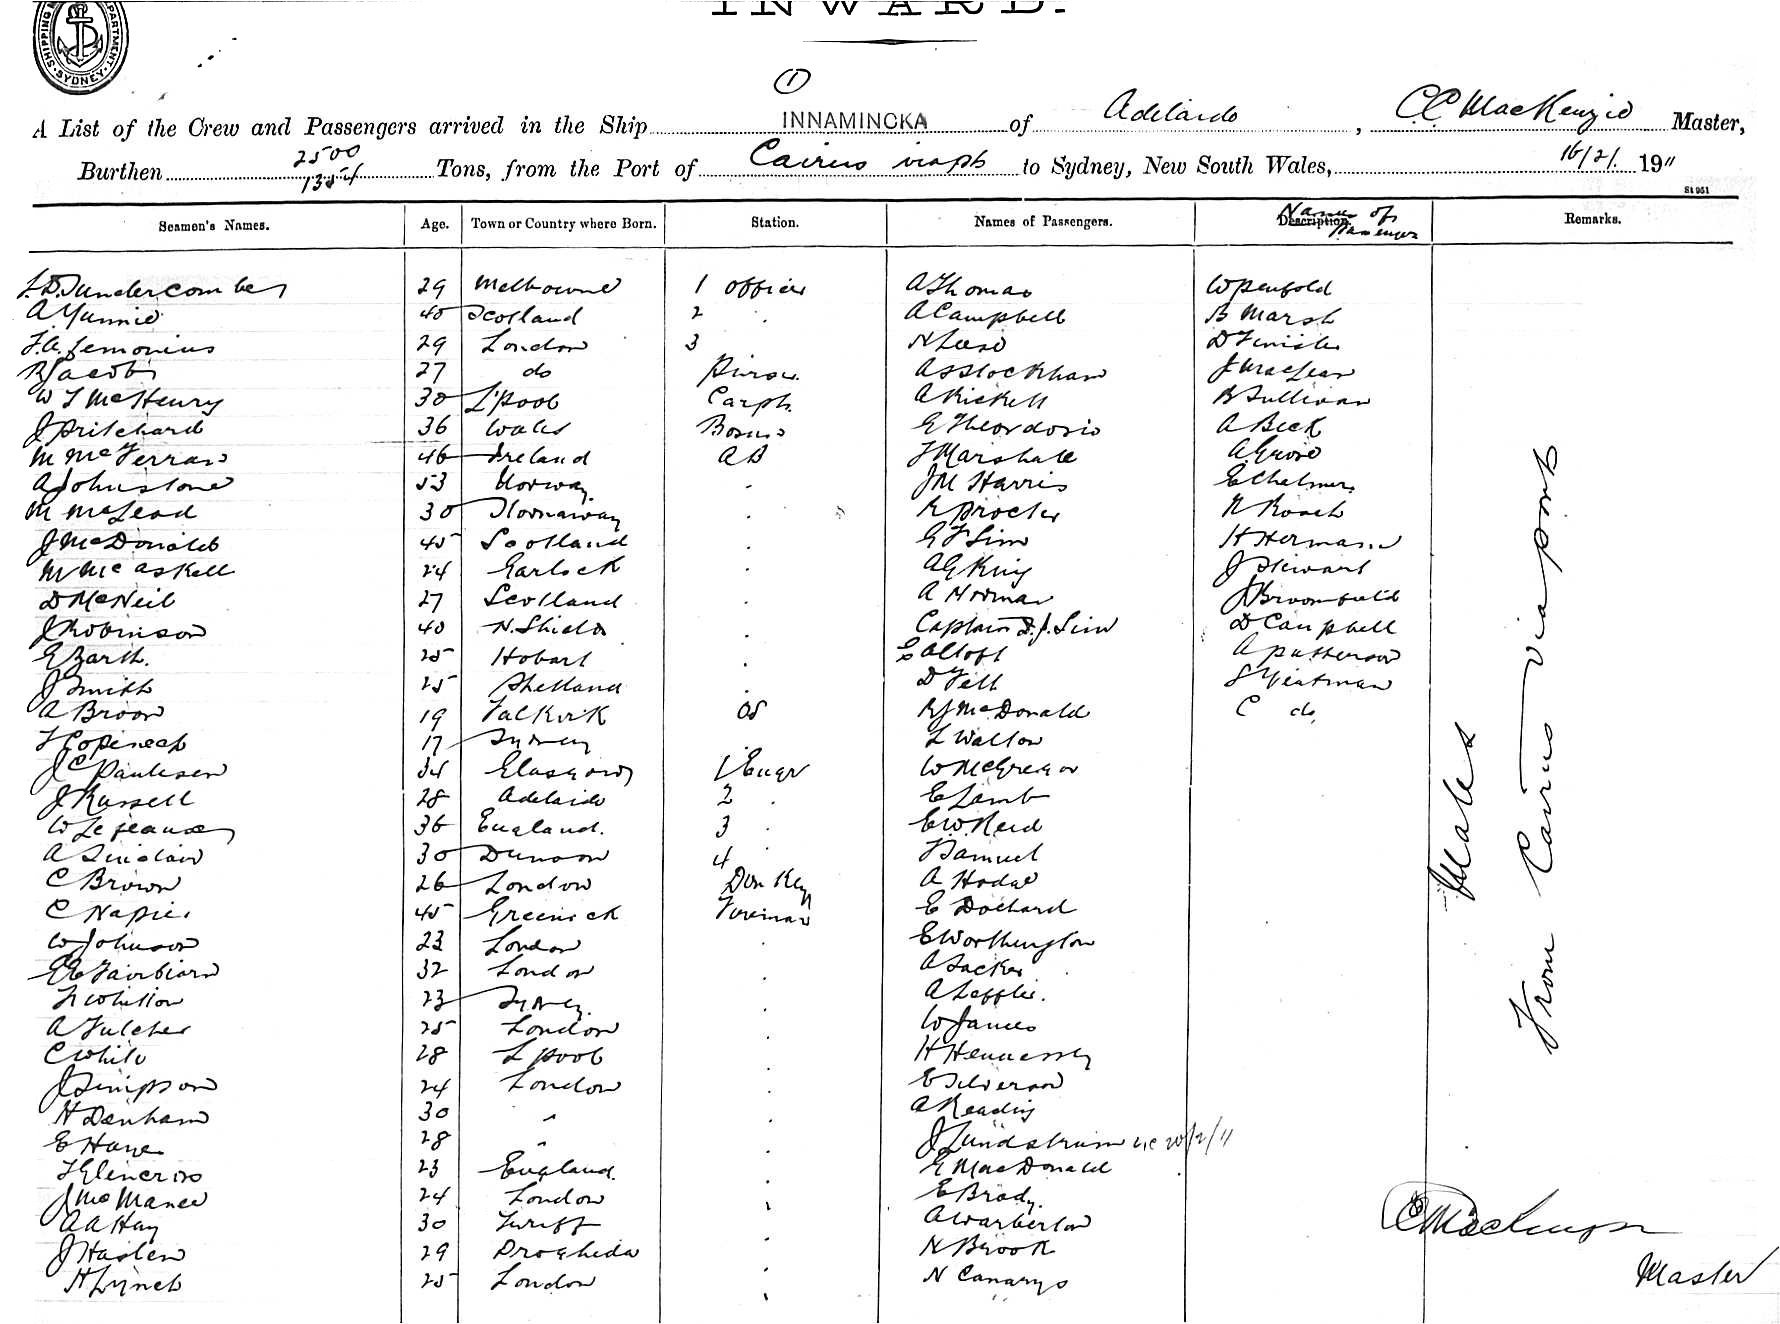 INWARD.
SHIPPING DEPARTMENT SYDNEY
1
A List of the Crew and Passengers arrived in the Ship INNAMINCKA of Adelaide, CC MacKenzie Master,
Burthen 2500 Tons, from the Port of Cairns via pts to Sydney, New South Wales, 16/2/ 1911
1354
St 951
Seamen's Names. Age. Town or Country where Born. Station. Names of Passengers. Description. Names of Passengers Remarks.
29 Melbourne 1 officer A Thomas W Penfold
40 Scotland 2 A Campbell B Marsh
29 London 3 N Leese D
R Jacobs 27 do Purser A Stockham J MacLean
W J McHenry 30 L'pool Carptr A Rickett B Sullivan
J Pritchard 36 Wales Bosun E Theordosis A Beck
M McFerran 46 Ireland AB J Marshall A
A Johnstone 53 Norway J M Harris E Chelmers
M McLeod 30 Stornaway R Procter R Roach
J McDonald 45 Scotland G F Sim H Hermann
M McAskell 24 Garlock A G King J Stewart
D McNeil 27 Scotland A Norman J Broomfield
J Robinson 40 N. Shields Captain D. J. Sim D Campbell
E Barth. 25 Hobart E Alloft A Patterson
J Smith 25 Shetland D Fell S Yeatman
A Broon 19 Falkirk OS R J McDonald C do
17 Sydney L Walton
J C Paulesen 34 Glasgow 1 Engr W McGregor
J Russell 28 Adelaide 2 E Lamb
W Lejeaux 36 England. 3 E W Reid
A Sinclair 30 Dunoon 4 J Samuel
C Brown 26 London Donkey A Hodge
C Napier 45 Greenock Fireman E Dochard
W Johnson 23 London E Worthington
E E Fairbiarn 32 London A Sacker
F Whitton 23 Sydney A Leffler.
A Fulcher 25 London W James
C White 28 L'pool H Hennessey
J Simpson 24 London E Silverson
H Denham 30 " A Reading
E Haye 28 " J Lundstrum 20/2/11
23 England. E MacDonald
J McManee 24 London E Brady
A A Hay 30 Turiff A Warberton
J Haslen 29 Drogheda N Brook
H Lynch 25 London N Canarys
Males
From Cairns via ports
CC MacKenzie
Master